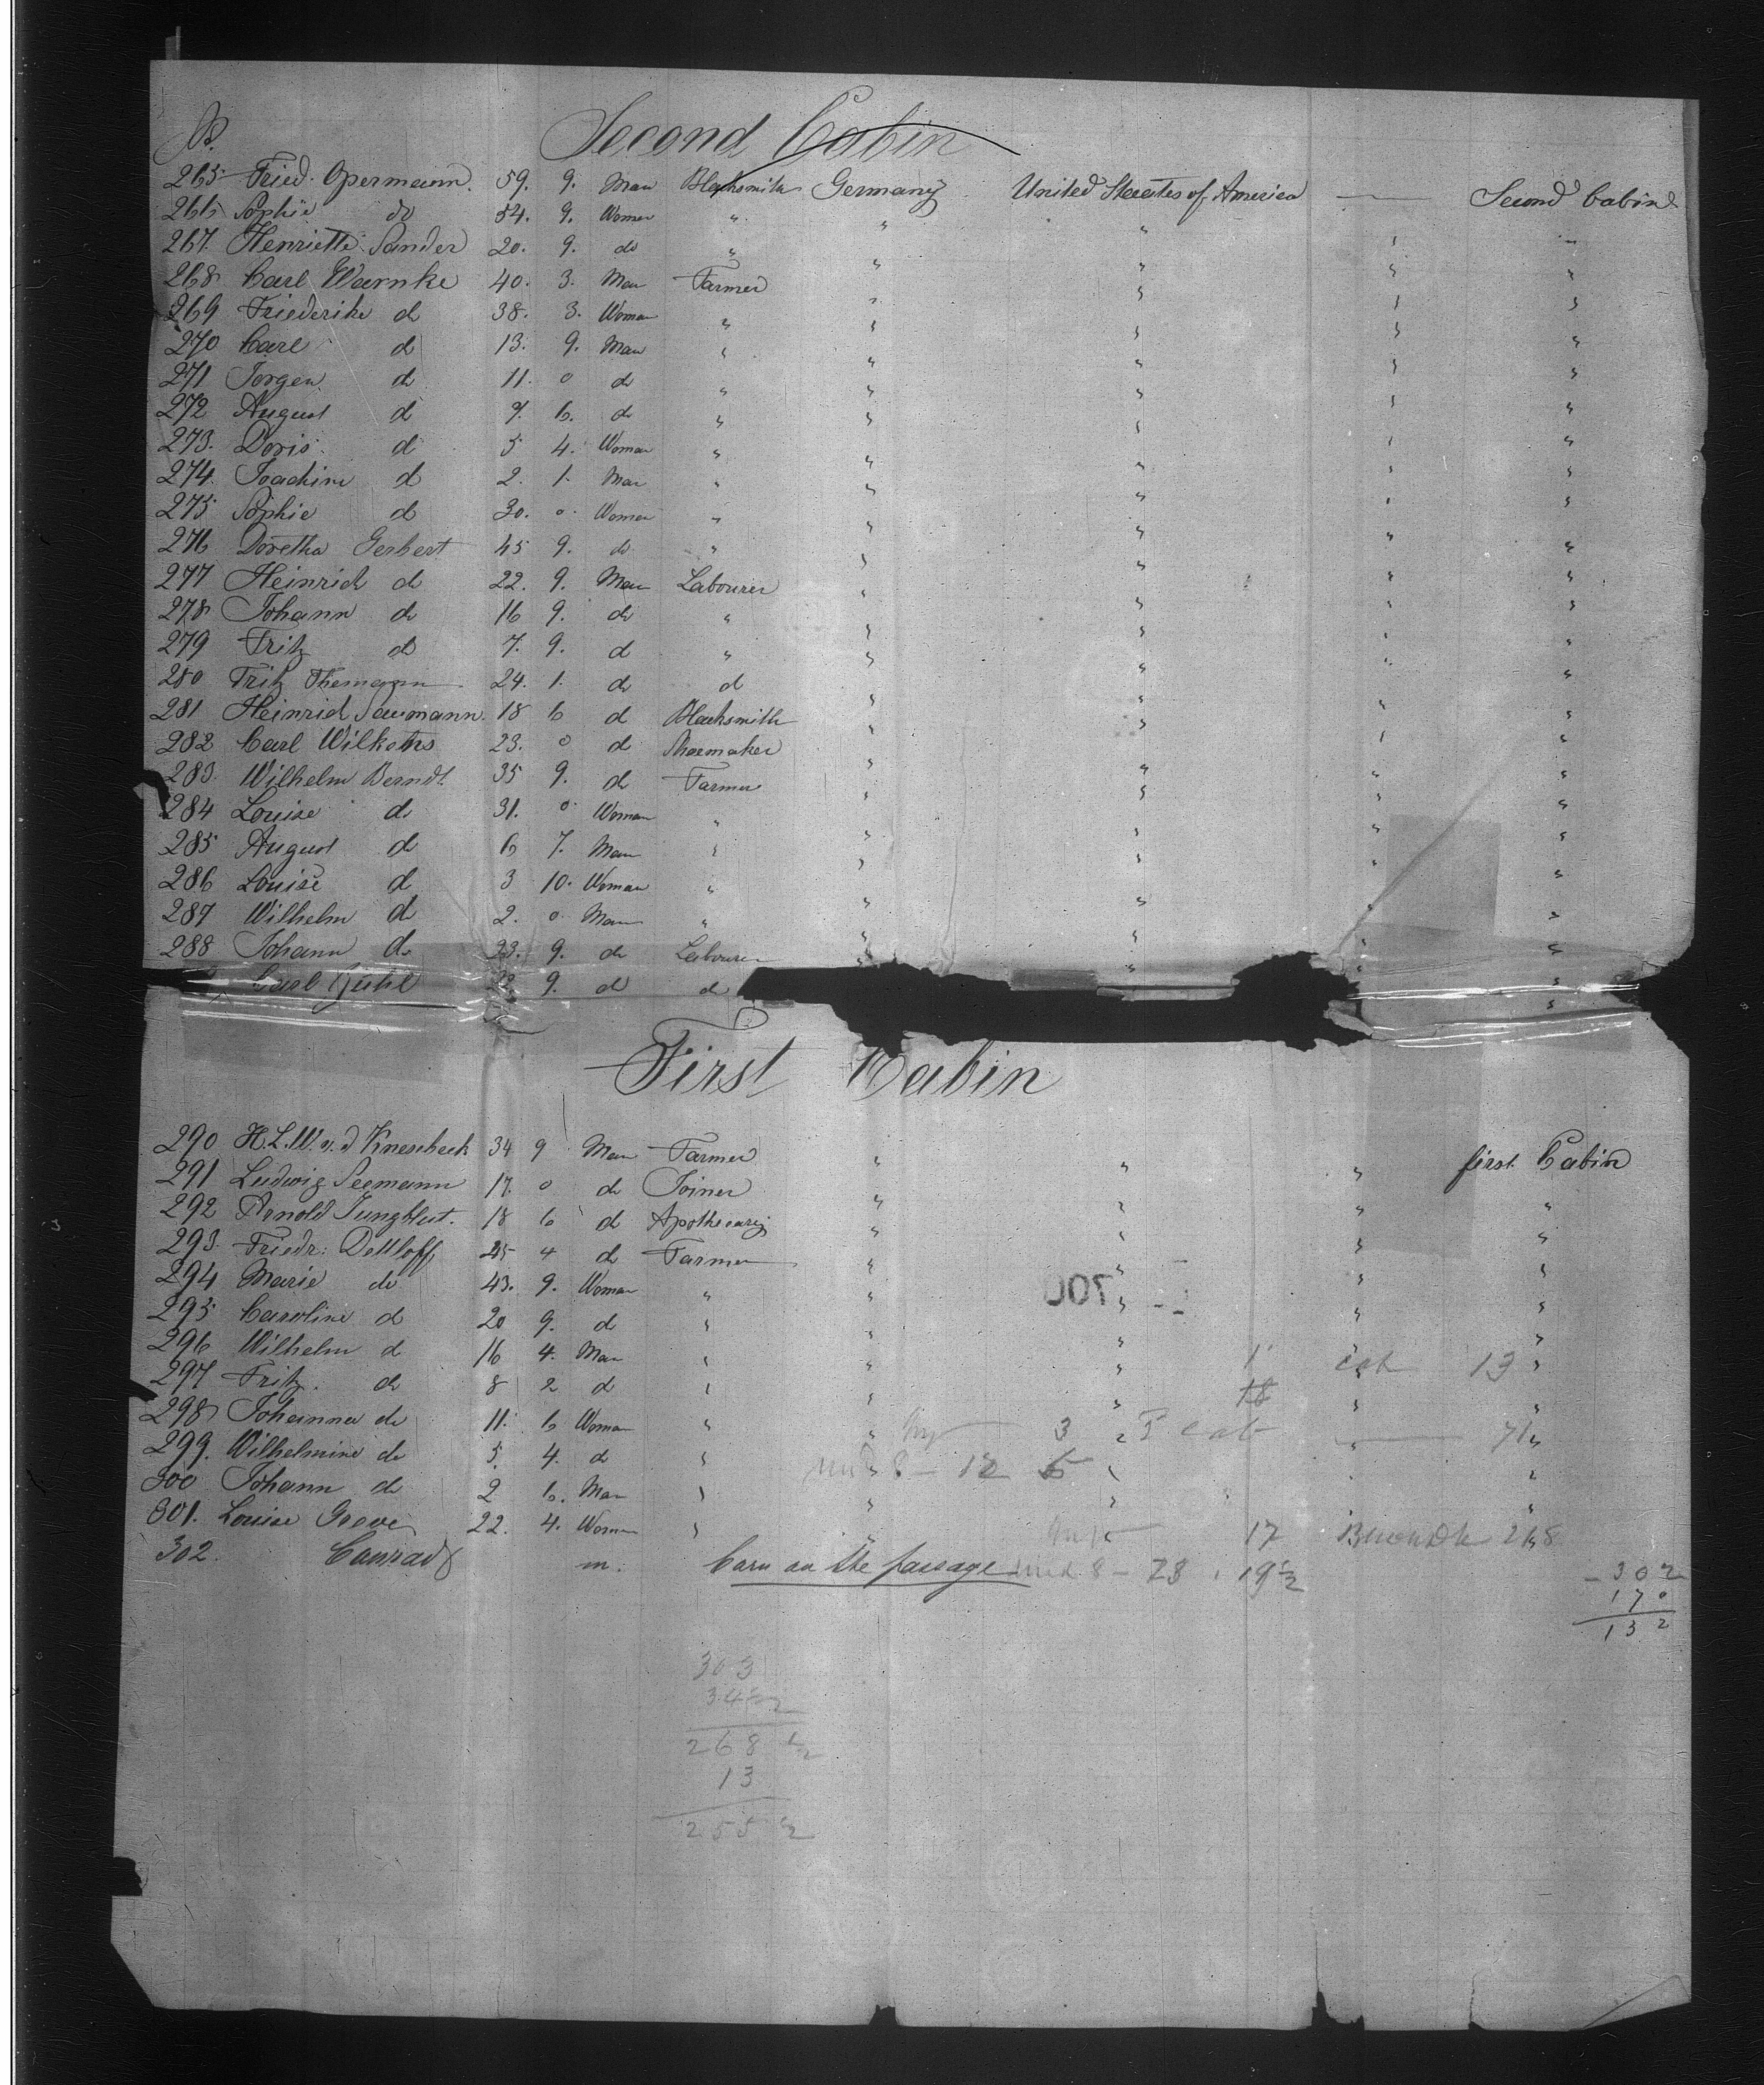 Second Cabin
265 Fried. Opermann. 59. 9. Man Blacksmith Germany United Staates of America —— Second Cabin
266 Sophie do 54. 9. Women " " " " "
267. Henriette Sander 20. 9. do " " " " "
268 Carl Warnke 40. 3. Man Farmer " " " "
269 Friederike d 38. 3. Woman " " " " "
270 Carl d 13. 9. Man " " " " "
271 Jorgen d 11. 0 d " " " " "
272 August d 7. 6. d " " " " "
273. Doris d 5 4. Woman " " " " "
274. Joachim d 2. 1. Man " " " " "
275 Sophie d 30. 0. Women " " " " "
276 Doretha Gerbert 45 9. d " " " " "
277 Heinrich d 22. 9. Man Labourer " " " "
278 Johann d 16 9. d " " " " "
279 Fritz d 7. 9. d " " " " "
280 Fritz Themann 24. 1. d d " " " "
281 Heinrich Saumann. 18 6 d Blacksmith " " " "
282 Carl Wilkens 23. 0 d Shoemaker " " " "
283. Wilhelm Berndt. 35 9. d Farmer " " " "
284 Louise d 31. 0 Woman " " " " "
285 August d 6 7. Man " " " " "
286 Louise d 3 10. Woman " " " " "
287 Wilhelm d 2. 0 Man " " " " "
288 Johann d 23. 9. d Labourer " " " "
Carl Guhl 22. 9. d d " "
First Cabin
290 H.L.W. v. d Knesebeck 34 9 Man Farmer " " " first Cabin
291 Ludwig Seemann 17. 0 d Joiner " " " "
292 Arnold Jungblut. 18 6 d Apothecary " " " "
293. Friedr: Dettloff 45 4 d Farmer " " " "
294 Marie do 43. 9. Woman " " " " "
295 Caroline d 20 9. d " " " " "
296 Wilhelm d 16 4. Man " " " 1 cab 13 "
297 Fritz. d 8 2 d " " " 18 " "
298 Johanna d 11. 6 Woman " " 3 " cab —— 71 "
299. Wilhelmine d 5. 4. d " 8 - 12 " "
300 Johann d 2 6. Man " " " "
301. Louise Greve 22. 4. Woman " " 17 268
302. Conrad m. born on the passage 8 - 73 19½
302
170
132
303
34½
268 ½
13
255 ½